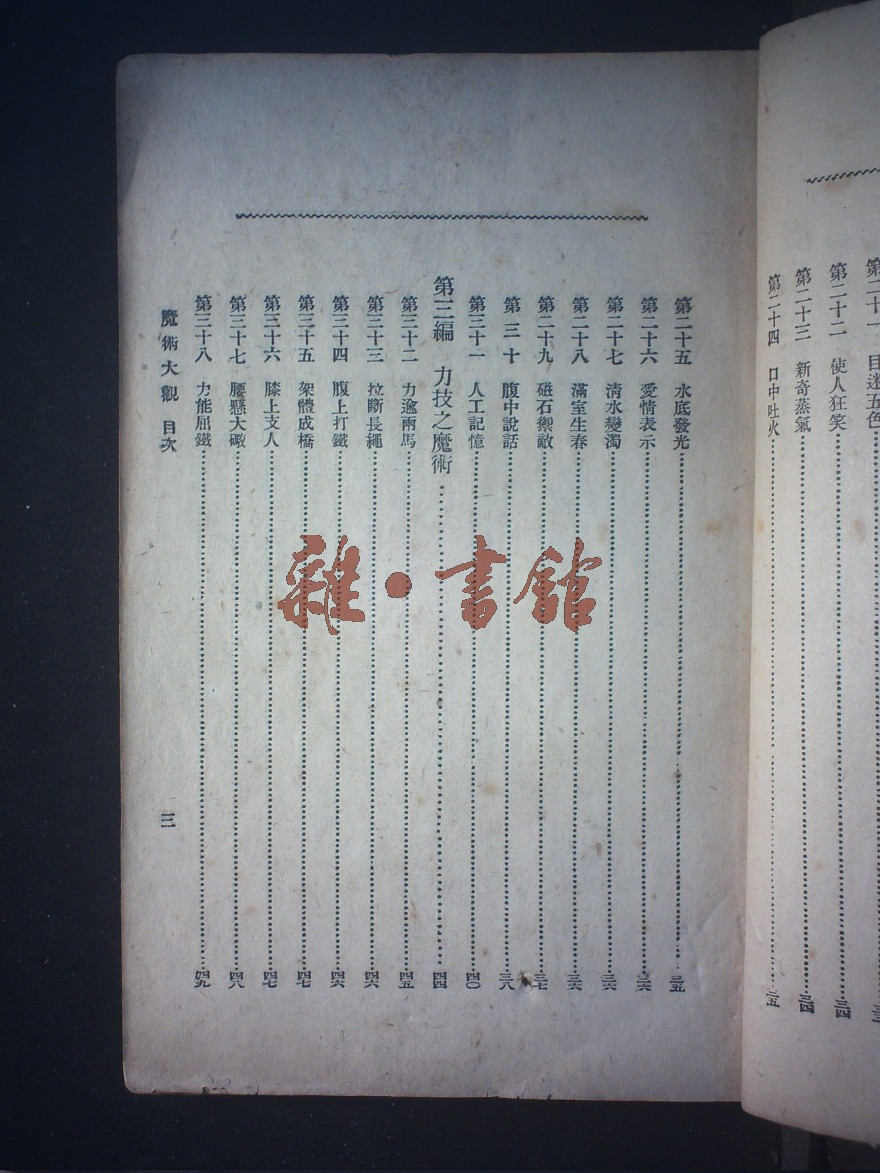 第二十一 目迷五色
第二十二 使人狂笑 三四
第二十三 新奇蒸氣 三四
第二十四 口中吐火 三五
第二十五 水底發光 三五
第二十六 愛情表示 三六
第二十七 淸水變濁 三六
第二十八 滿室生春 三六
第二十九 磁石禦敵 三七
第三十 腹中說話 三八
第三十一 人工記憶 四〇
第三編 力技之魔術 四四
第三十二 力逾兩馬 四五
第三十三 拉斷長繩 四六
第三十四 腹上打鐵 四六
第三十五 架體成橋 四七
第三十六 膝上支人 四七
第三十七 腰懸大礮 四八
第三十八 力能屈鐵 四九
魔術大觀 目次 三
雜·書館